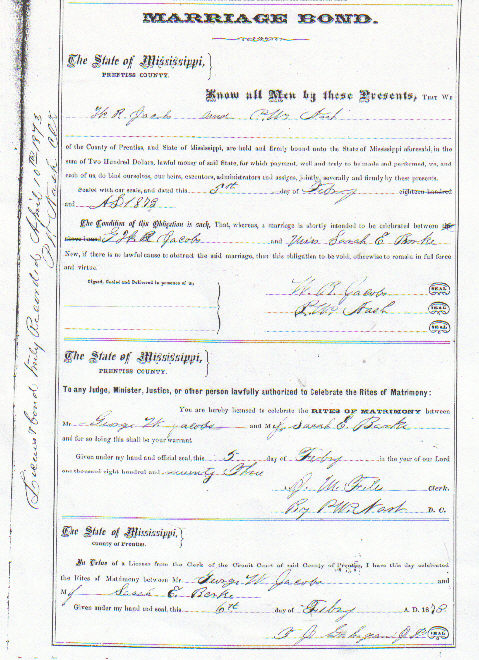 MARRIAGE BOND.
The State of Mississippi,
PRENTISS COUNTY.
Know all Men by these Presents, THAT WE
W R Jacobs and P. W. Nash
of the County of Prentiss, and State of Mississippi, are held and firmly bound unto the State of Mississippi aforesaid, in the
sum of Two Hundred Dollars, lawful money of said State, for which payment, well and truly to be made and performed, we, and
each of us do bind ourselves, our heirs, executors, administrators and assigns, jointly, severally and firmly by these presents.
Sealed with our seals, and dated this 5th day of Feby eighteen hundred
and AD 1878
The Condition of this Obligation is such, That, whereas, a marriage is shortly intended to be celebrated between
Jacobs and Miss Sarah E
Now, if there is no lawful cause to obstruct the said marriage, then this obligation to be void, otherwise to remain in full force
and virtue.
Signed, Sealed and Delivered in presence of us
W. R. Jacobs SEAL
P. W. Nash SEAL
SEAL
The State of Mississippi,
PRENTISS COUNTY.
To any Judge, Minister, Justice, or other person lawfully authorized to Celebrate the Rites of Matrimony:
You are hereby licensed to celebrate the RITES OF MATRIMONY between
Mr George W Jacobs and M Sarah E
and for so doing this shall be your warrant
Given under my hand and official seal, this 5 day of Feby in the year of our Lord
one thousand eight hundred and seventy
W. Clerk.
By P W Nash D. C.
The State of Mississippi,
County of Prentiss.
In Virtue of a License from the Clerk of the Circuit Court of said County of Prentiss, I have this day celebrated
the Rites of Matrimony between Mr George W Jacobs and
M E
Given under my hand and seal, this 6th day of Feby A. D. 1878
J. P. SEAL
License & bond truly Recorded April 10th 1878
P W Nash